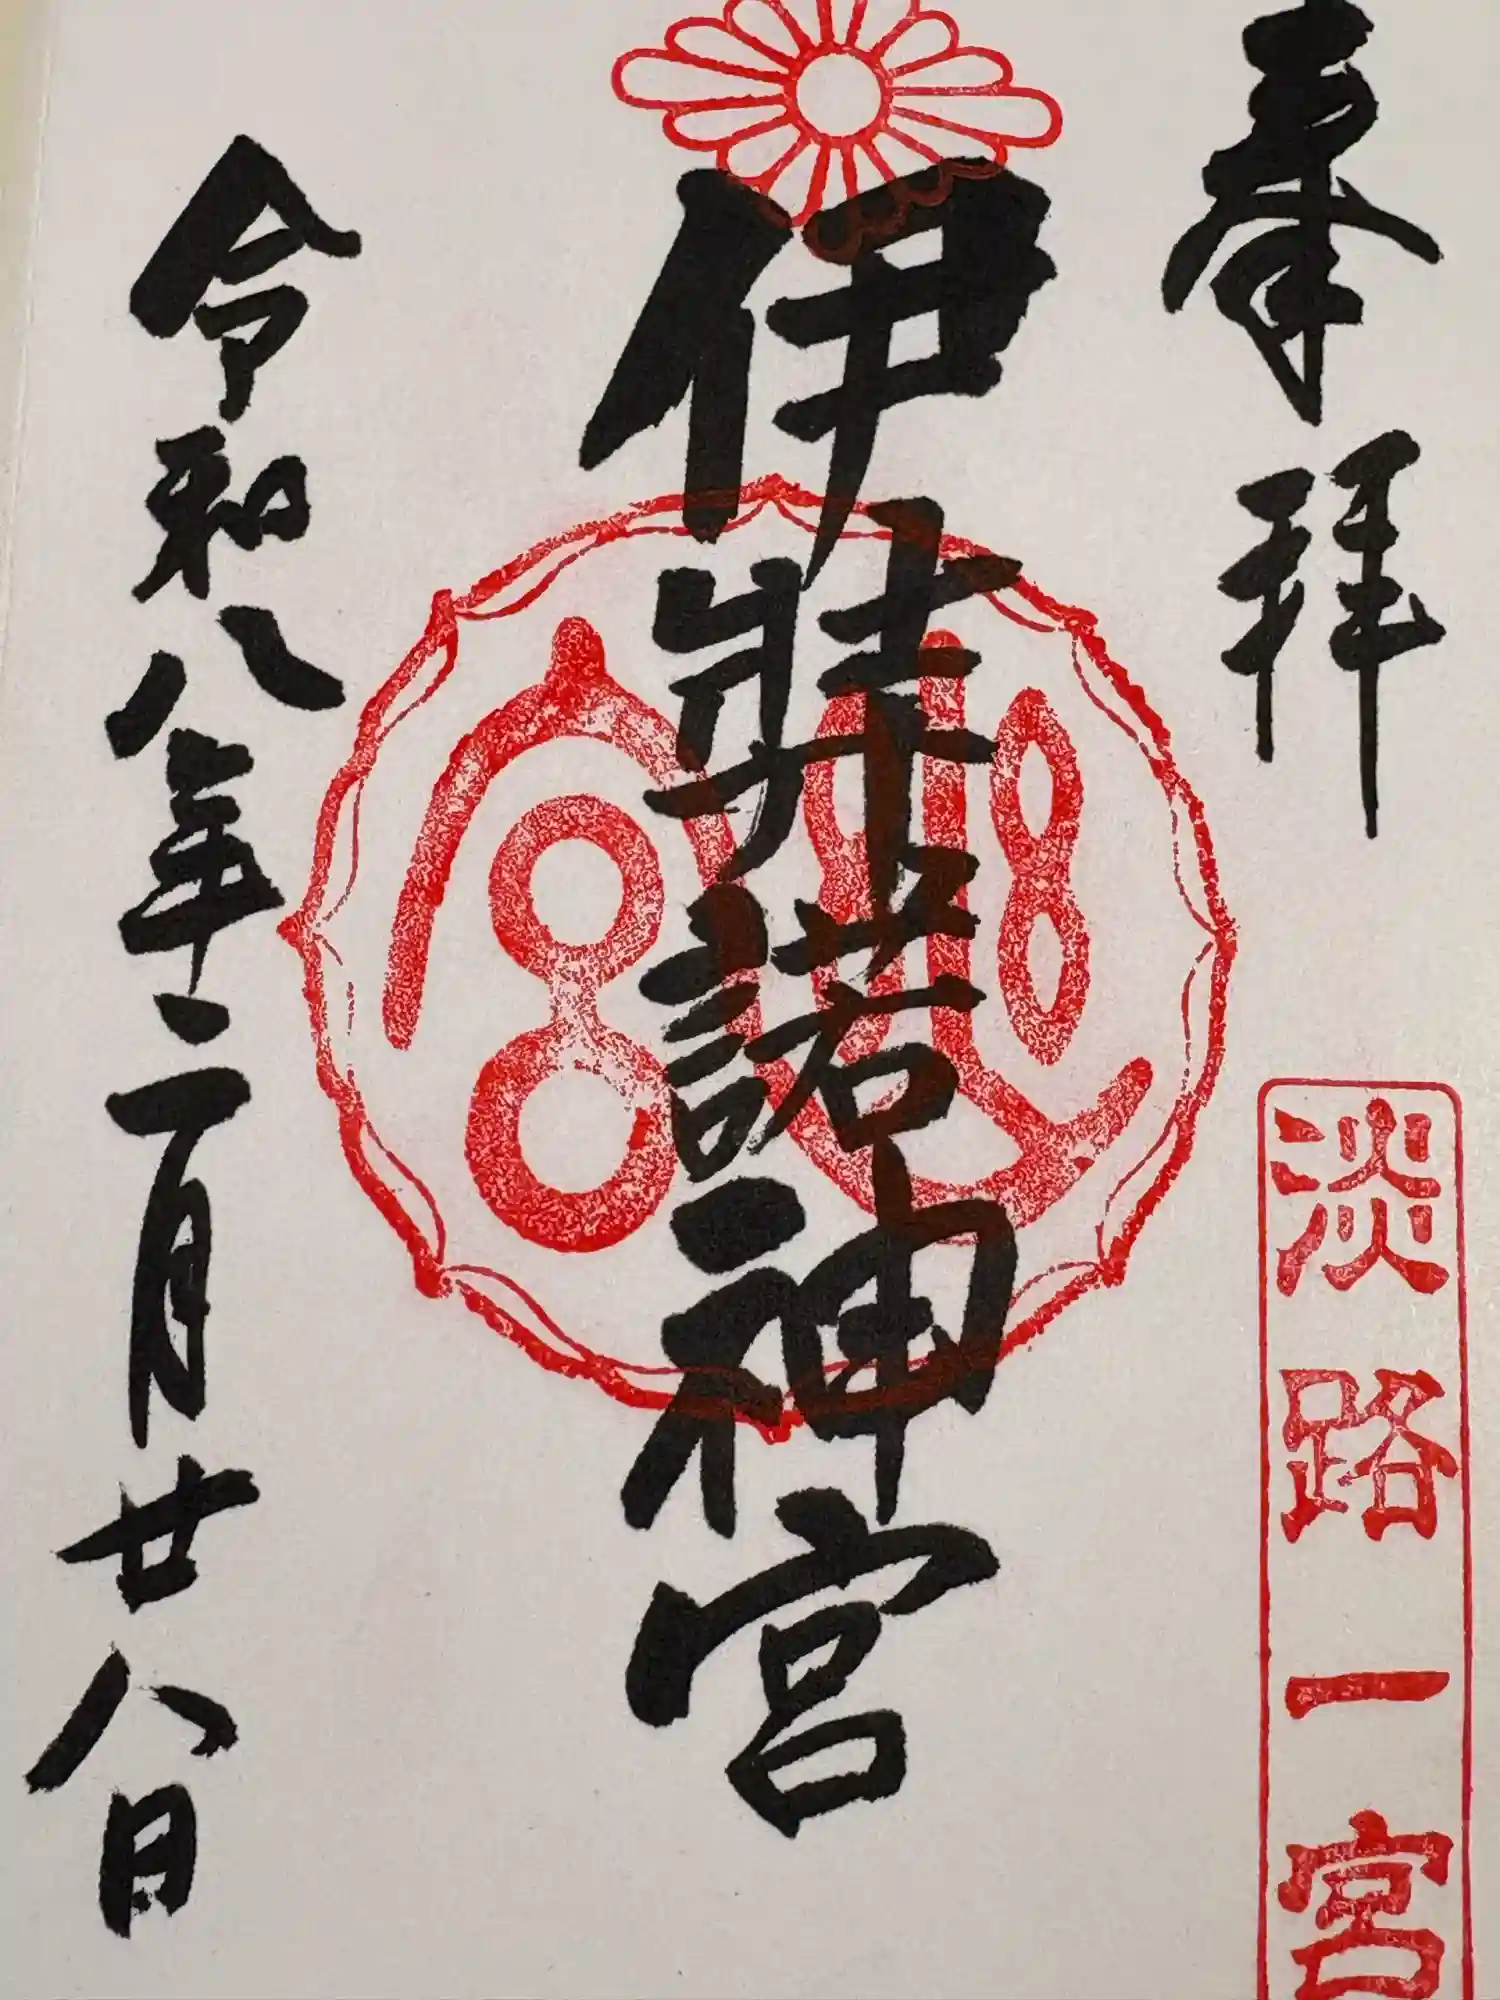 奉拝
淡路一宮
伊弉諾神宮
神宮
令和八年二月廿八日